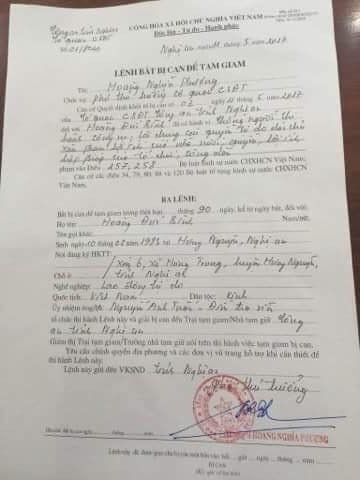 Công an tỉnh Nghệ An
Cơ quan CSĐT
CỘNG HÒA XÃ HỘI CHỦ NGHĨA VIỆT NAM
Độc lập - Tự do - Hạnh phúc
Nghệ An, tháng 5 năm 2017
LỆNH BẮT BỊ CAN ĐỂ TẠM GIAM
Tôi: Hoàng Nghĩa Phượng
Chức vụ: Phó thủ trưởng cơ quan CSĐT
Căn cứ Quyết định khởi tố bị can số: 02 ngày tháng 5 năm 2017
của Cơ quan CSĐT Công an tỉnh Nghệ An
đối với Hoàng Đức Bình đã có hành vi chống người thi
hành công vụ; lợi dụng các quyền tự do dân chủ
xâm phạm lợi ích của nhà nước, quyền, lợi ích
hợp pháp của tổ chức, công dân
phạm vào Điều 257, 258 Bộ luật hình sự nước CHXHCN Việt Nam;
Căn cứ các điều 34, 79, 80, 88 và 120 Bộ luật tố tụng hình sự nước CHXHCN
Việt Nam,
RA LỆNH:
Bắt bị can để tạm giam trong thời hạn tháng 90 ngày, kể từ ngày bắt, đối với:
Họ tên: Hoàng Đức Bình Nam/nữ:
Tên gọi khác:
Sinh ngày 10 1983 Hưng Nguyên, Nghệ An
Nơi đăng ký HKTT:
Xóm 6, xã Hưng Trung, huyện Hưng Nguyên,
Chỗ ở: tỉnh Nghệ An
Nghề nghiệp: Lao động tự do
Quốc tịch: Việt Nam Dân tộc: Kinh
Ủy nhiệm ông/bà: Nguyễn Anh Tuấn - Điều tra viên
tổ chức thi hành Lệnh này và giải bị can đến Trại tạm giam/Nhà tạm giữ Công
an tỉnh Nghệ An
Giám thị Trại tạm giam/Trưởng nhà tạm giữ nói trên thi hành việc tạm giam bị can.
Yêu cầu chính quyền địa phương và các đơn vị vũ trang hỗ trợ khi cần thiết để
thi hành Lệnh này.
Lệnh này gửi đến VKSND tỉnh Nghệ An
Phó thủ trưởng
HOÀNG NGHĨA PHƯỢNG
Lệnh này đã được giao cho bị can một bản vào hồi giờ ngày tháng năm
BỊ CAN